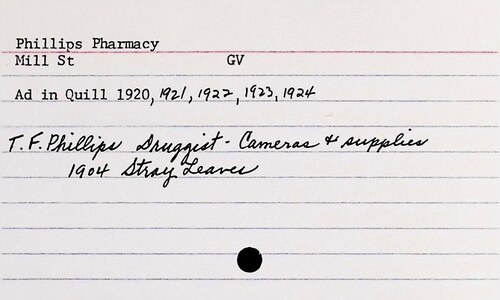 Phillips Pharmacy
Mill St GV
Ad in Quill 1920, 1921, 1922, 1923, 1924
T. F. Phillips Druggist - Cameras & supplies
1904 Stray Leaves